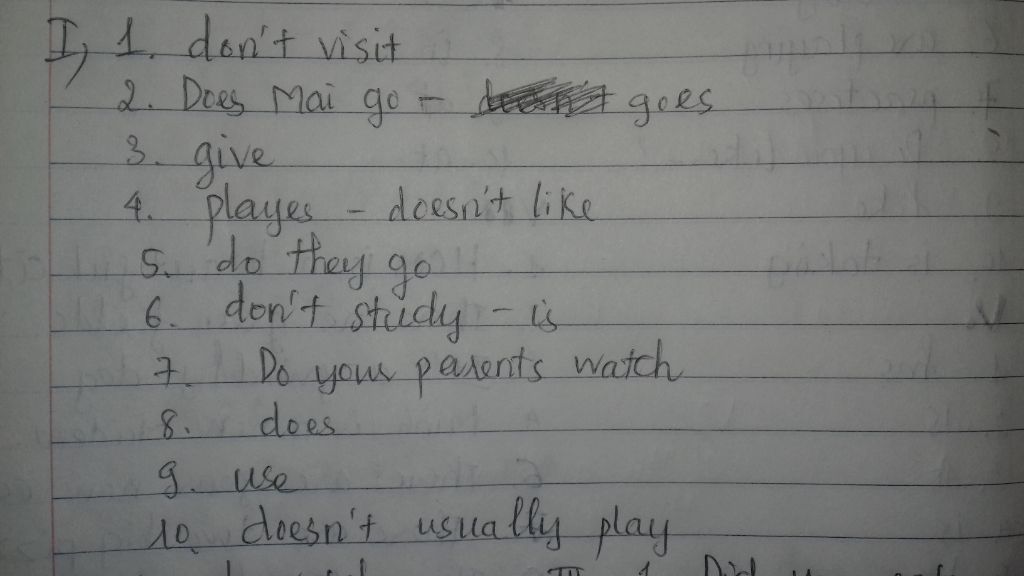 I, 1. don't visit
2. Does Mai go - goes
3. give
4. playes - doesn't like
5. do they go
6. don't study - is
7. Do your parents watch
8. does
9. use
10. doesn't usually play
III 1. Did